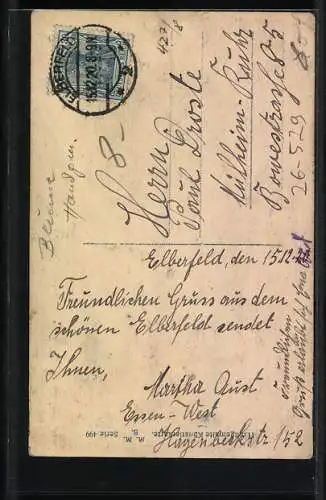 ELBERFELD
15.12.20. 8-9N.
427/8
8-
8-
Herrn
Paul Droste
Mülheim-Ruhr
26-5-29
Blume
Elberfeld, den 15.12.
Freundlichen Gruss aus dem
schönen Elberfeld sendet
Ihnen,
Martha Aust
Essen-West
Hagenbeckstr 152
Freundlichen
Gruß
Serie 499